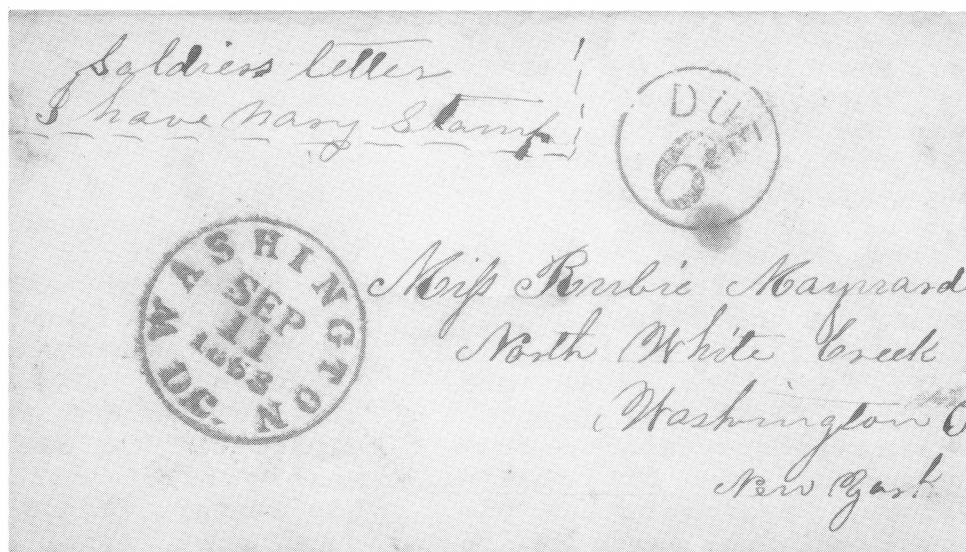 Soldiers letter
I have nary Stamp
DUE
6
WASHINGTON
D.C.
SEP
11
1863
Miss Rubie Maynard
North White Creek
Washington C
New York